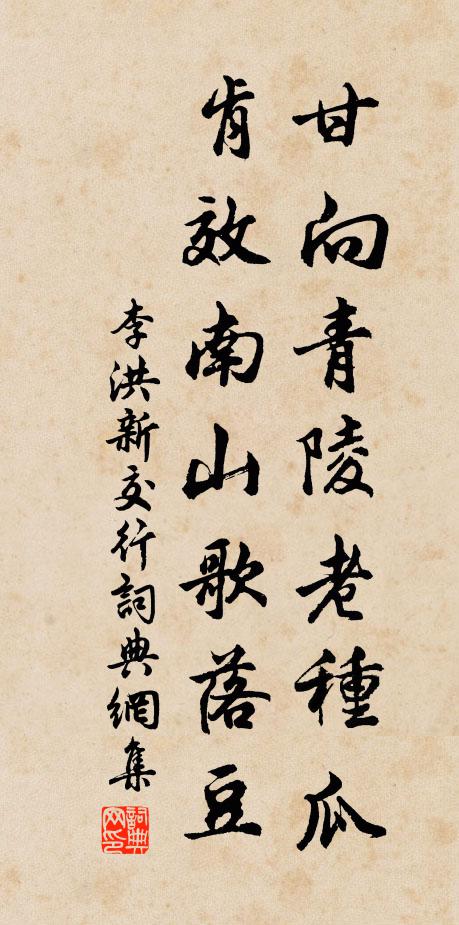 甘向青陵老種瓜
肯效南山歌落豆
李洪新交行詞典網集
詞典网印